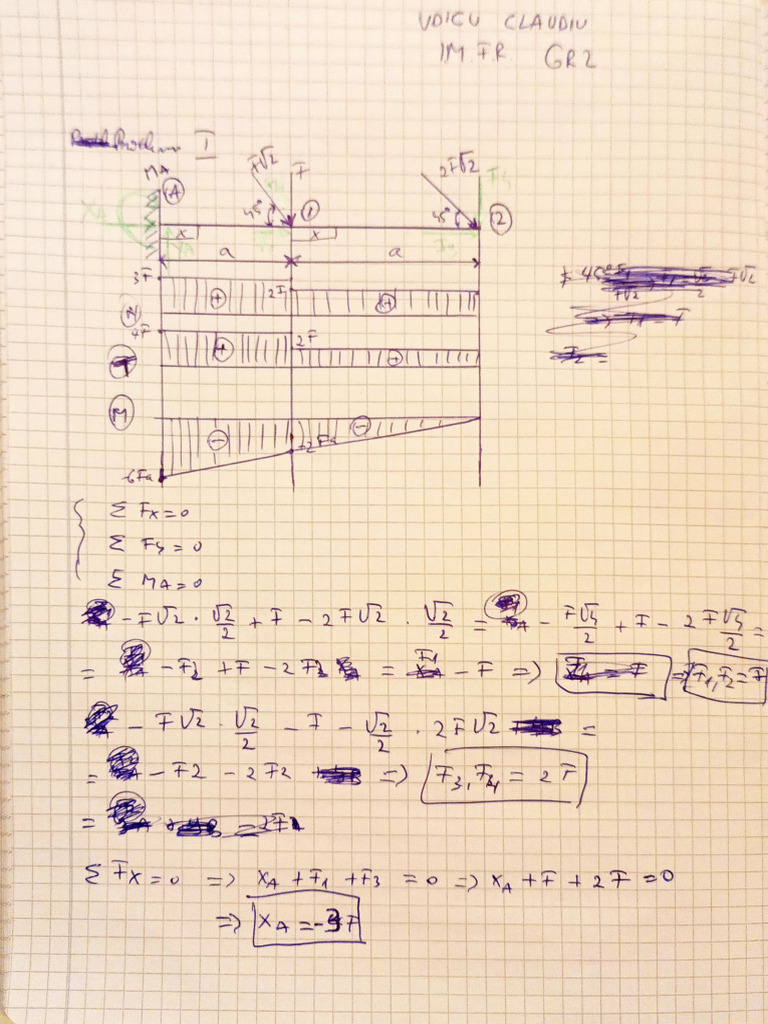 UDICU CLAUDIU
IM.FR GR2
Problem I
MA
A
F√2
F
2F√2
F4
XA
45°
1
45°
2
x
YA
x
a
a
3F
+
2F
+
N
4F
+
2F
+
T
M
-
-
-2Fa
-6Fa
Σ Fx=0
Σ Fy=0
Σ MA=0
-F√2 · √2/2 + F - 2F√2 · √2/2 = - F√4/2 + F - 2F√4/2 =
= -F2 + F - 2F2 = F1 - F => => F1,F2 = F
- F√2 · √2/2 - F - √2/2 · 2F√2 =
= - F2 - 2F2 => F3,F4 = 2F
=
Σ Fx=0 => XA + F1 + F3 = 0 => XA + F + 2F = 0
=> XA = -3F